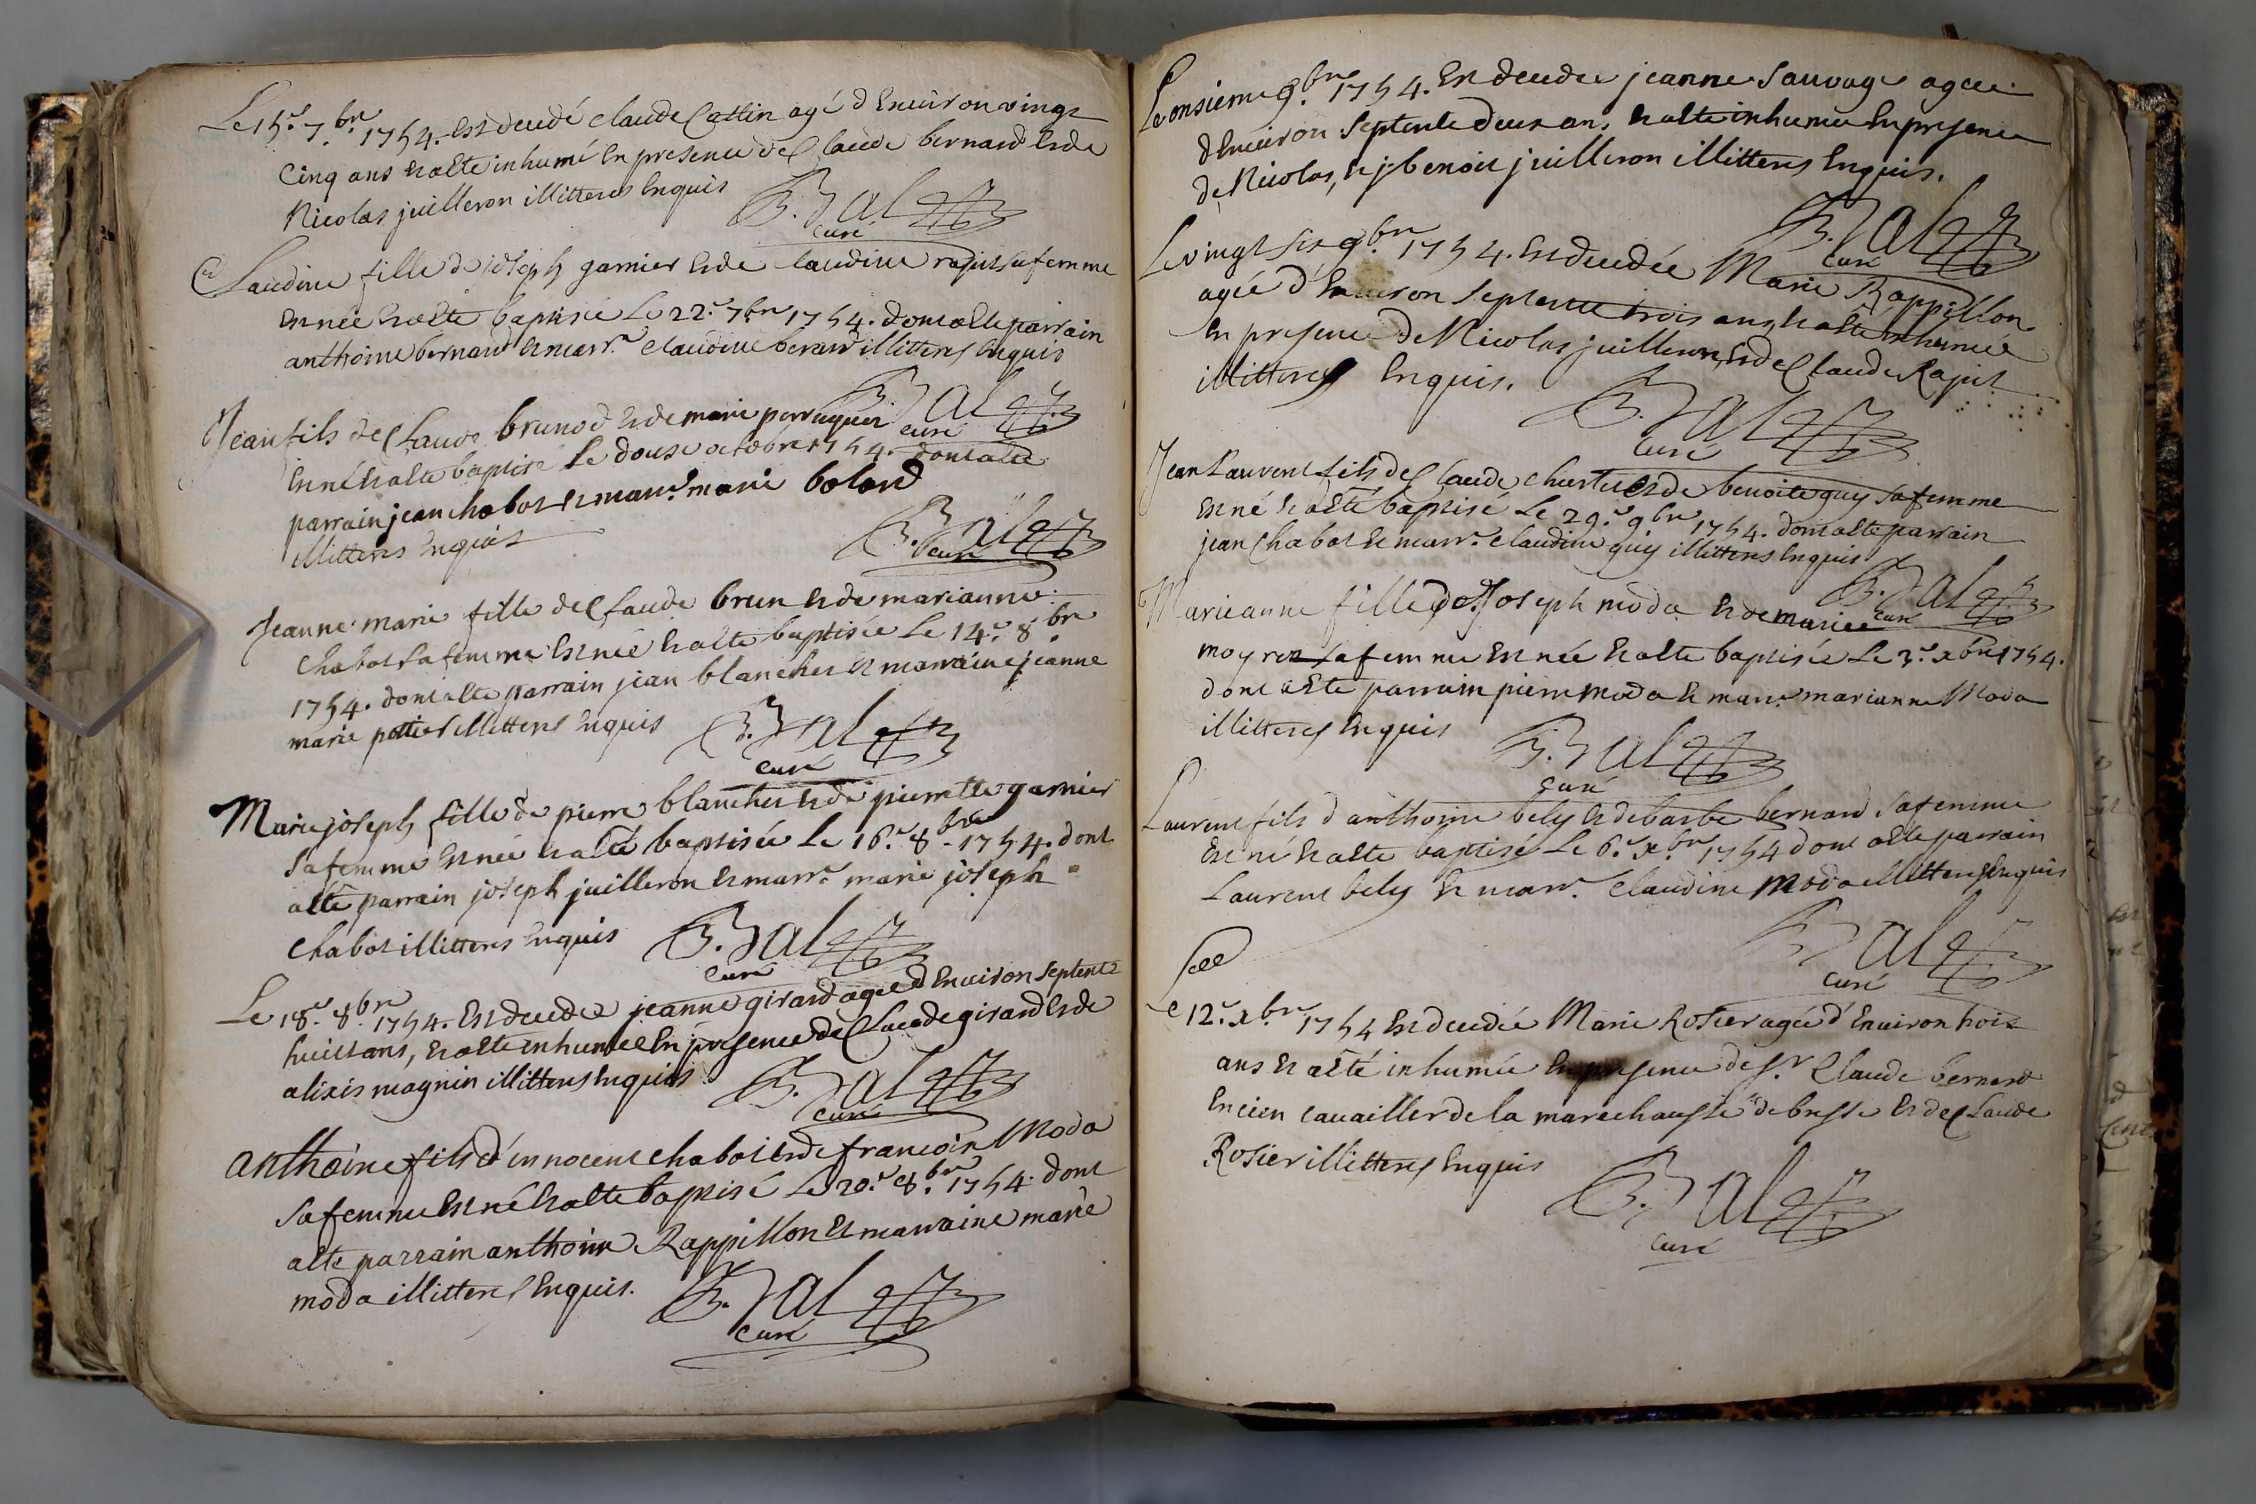 Le 15.e 7.bre 1754. est decedé claude Cattin agé d'Environ vingt
Cinq ans et a esté inhumé en presence de Claude bernard et de
Nicolas juilleron illitteres Enquis
B. Bal
curé
Claudine fille de joseph garnier et de Claudine rapit sa femme
est née et a esté baptisée le 22.e 7.bre 1754. dont a esté parrain
anthoine bernard et marr.e claudine berard illitteres Enquis
B. Bal
curé
Jean fils de Claude brunod et de marie perruquet
est né et a esté baptisé le douse octobre 1754. dont a esté
parrain jean chabot et marr.e marie boland
illitteres Enquis
B. Bal
curé
Jeanne marie fille de Claude brun et de marianne
chabot sa femme est née et a esté baptisée le 14.e 8.bre
1754. dont a esté parrain jean blanchet et marraine jeanne
marie pottier illitteres Enquis
B. Bal
curé
Marie joseph fille de pierre blanchet et de pierrette garnier
sa femme est née et a esté baptisée le 16.e 8.bre 1754. dont
a esté parrain joseph juilleron et marr.e marie joseph
chabot illitteres Enquis
B. Bal
curé
Le 18.e 8.bre 1754. est decedée jeanne girard agée d'Environ septente
huit ans, et a esté inhumée En presence de Claude girard et de
alixis magnin illitteres Enquis
B. Bal
curé
anthoine fils d'innocent chabot et de francoise Moda
sa femme est né et a esté baptisé le 20.e 8.bre 1754. dont
a esté parrain anthoine Rappillon et marraine marie
moda illitteres Enquis.
B. Bal
curé
Le onsieme 9.bre 1754. est decedée jeanne Sauvage agée
d'Environ septente deux ans, et a esté inhumée En presence
de Nicolas, et j. benoit juilleron illitteres Enquis.
B. Bal
curé
Le vingt six 9.bre 1754. est decedée Marie Rappillon
agée d'Environ septente trois ans, et a esté inhumée
En presence de Nicolas juilleron, et de Claude Rapit
illitteres Enquis.
B. Bal
curé
Jean Laurent fils de Claude et de benoite guy sa femme
est né et a esté baptisé Le 29.e 9.bre 1754. dont a esté parrain
jean Chabot et marr.e claudine guy illitteres Enquis
B. Bal
curé
Marieanne fille de Joseph moda et de marie
moyret sa femme est née et a esté baptisée Le 3.e xbre 1754.
dont a esté parrain pierre moda et marr.e marianne Moda
illitteres Enquis
B. Bal
curé
Laurent fils d'anthoine bely et de barbe bernard sa femme
est né et a esté baptisé Le 6.e x.bre 1754 dont a esté parrain
Laurent bely et marr.e claudine Moda illitteres Enquis
B. Bal
curé
Le 12.e x.bre 1754 est decedée Marie Rosier agée d'Environ trois
ans et a esté inhumée En presence de s.r Claude bernard
Encien cavailler de la marechaussé de bresse et de Claude
Rosier illitteres Enquis
B. Bal
curé